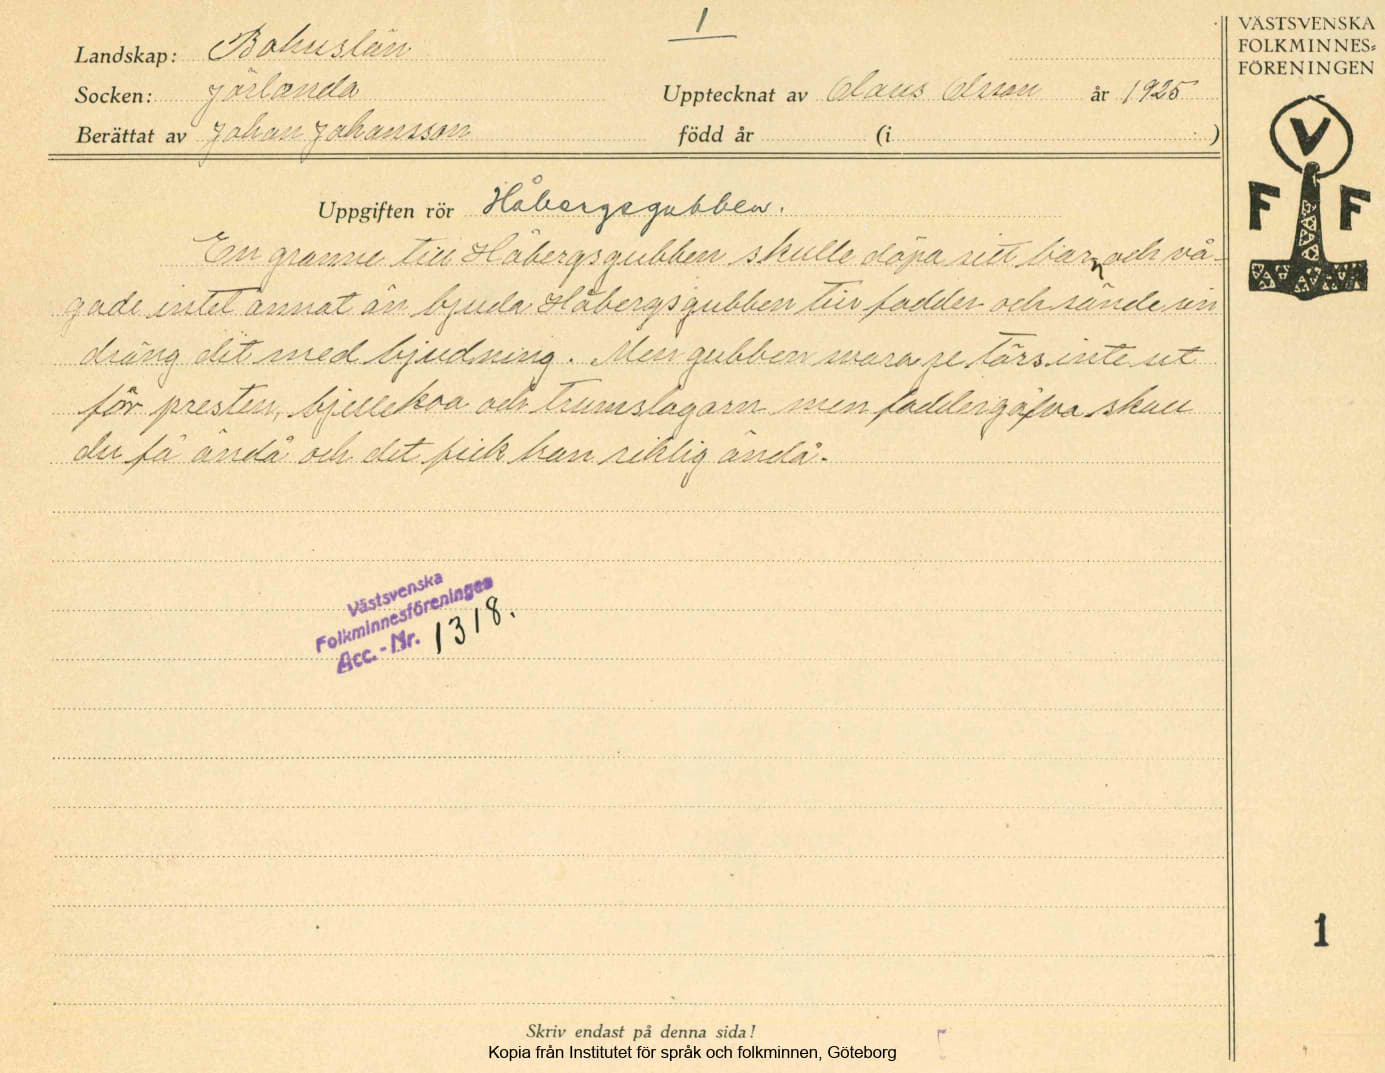 1
VÄSTSVENSKA
FOLKMINNES=
FÖRENINGEN
Landskap: Bohuslän
Socken: Jörlanda
Upptecknat av Claus Olsson år 1925
Berättat av Johan Johansson
född år (i )
V
F F
Uppgiften rör Håbergsgubben.
En granne till Håbergsgubben skulle döpa sitt barn och vå-
gade intet annat än bjuda Håbergsgubben till fadder och sände sin
dräng dit med bjudning. Men gubben svara je törs inte ut
för presten, bjellekoa och trumslagarn men faddergåfva skall
du få ändå och det fick han riklig ändå.
Västsvenska
Folkminnesföreningen
Acc.-Nr. 1318.
1
Skriv endast på denna sida!
Kopia från Institutet för språk och folkminnen, Göteborg